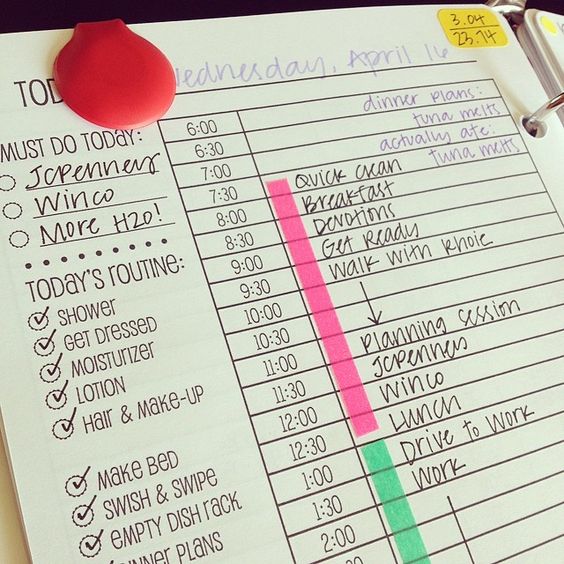 3.04
23.74
Wednesday, April 16
dinner plans:
tuna melts
actually ate:
tuna melts
MUST DO TODAY:
JCPenney
Winco
More H2O!
TODAY'S ROUTINE:
SHOWER
GET DRESSED
MOISTURIZER
LOTION
HAIR & MAKE-UP
MAKE BED
SWISH & SWIPE
EMPTY DISH RACK
DINNER PLANS
6:00
6:30
7:00 Quick clean
7:30 Breakfast
8:00 Devotions
8:30 Get Ready
9:00 Walk with Rhoie
9:30
10:00
10:30 Planning session
11:00 JCPenney
11:30 Winco
12:00 Lunch
12:30 Drive to work
1:00 Work
1:30
2:00